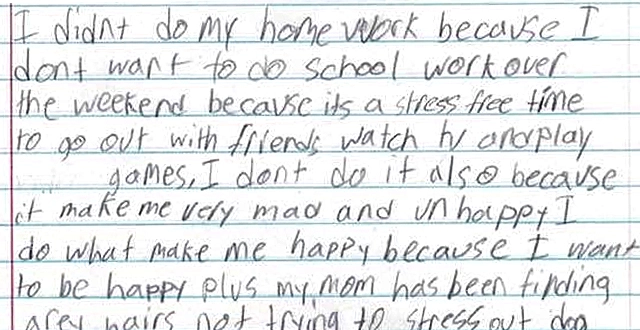 I didnt do my home work because I
dont want to do school work over
the weekend because its a stress free time
to go out with friends watch tv and play
games, I dont do it also because
it make me very mad and unhappy I
do what make me happy because I want
to be happy plus my mom has been finding
grey hairs not trying to stress out dog